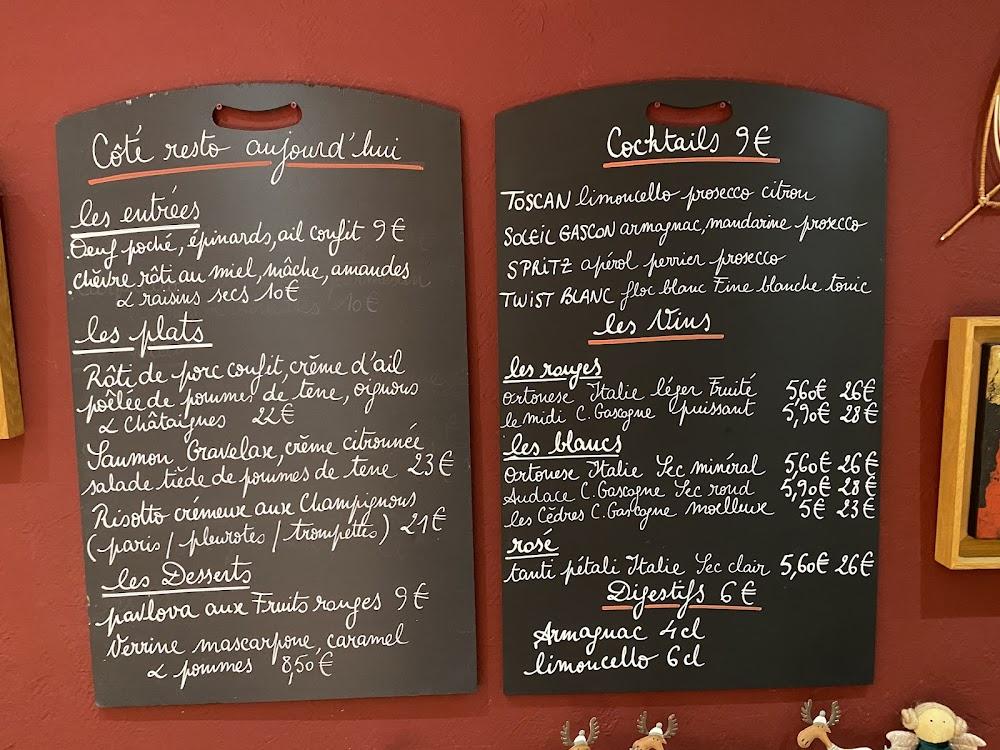 Côté resto aujourd'hui
les entrées
. Oeuf poché, épinards, ail confit 9€
. chèvre rôti au miel, mâche, amandes
& raisins secs 10€
les plats
Rôti de porc confit, crème d'ail
poêlée de pommes de terre, oignons
& châtaignes 22€
Saumon Gravelax, crème citronnée
salade tiède de pommes de terre 23€
Risotto crémeux aux Champignons
(paris / pleurotes / trompettes) 21€
les Desserts
pavlova aux Fruits rouges 9€
Verrine mascarpone, caramel
& pommes 8,50€
Cocktails 9€
TOSCAN limoncello prosecco citron
SOLEIL GASCON armagnac, mandarine prosecco
SPRITZ apérol perrier prosecco
TWIST BLANC floc blanc Fine blanche tonic
les Vins
les rouges
Ortonese Italie léger Fruité 5,60€ 26€
le midi C. Gascogne puissant 5,90€ 28€
les blancs
Ortonese Italie Sec minéral 5,60€ 26€
Audace C. Gascogne Sec rond 5,90€ 28€
les Cèdres C. Gascogne moelleux 5€ 23€
rosé
tanti pétali Italie Sec clair 5,60€ 26€
Digestifs 6€
Armagnac 4cl
limoncello 6cl